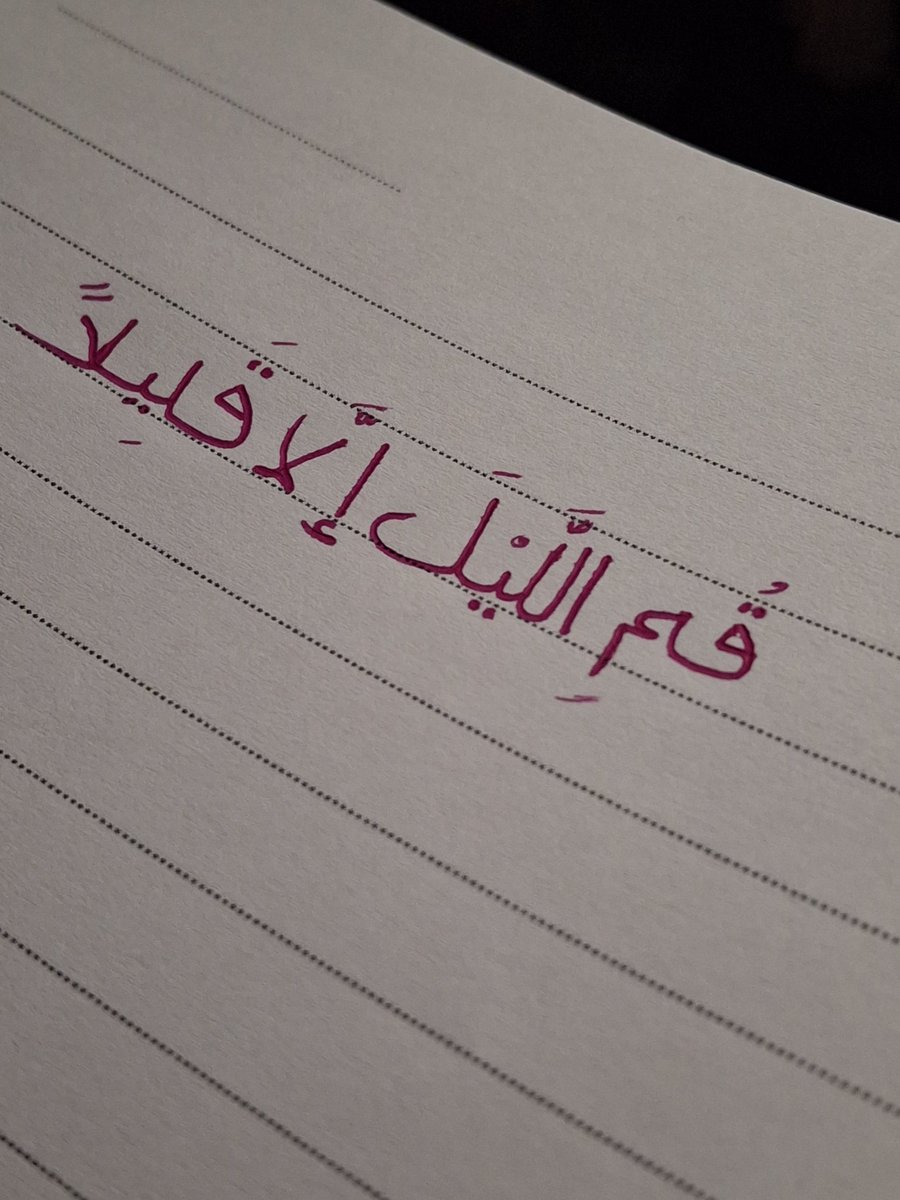 قُمِ اللَّيْلَ إِلَّا قَلِيلاً